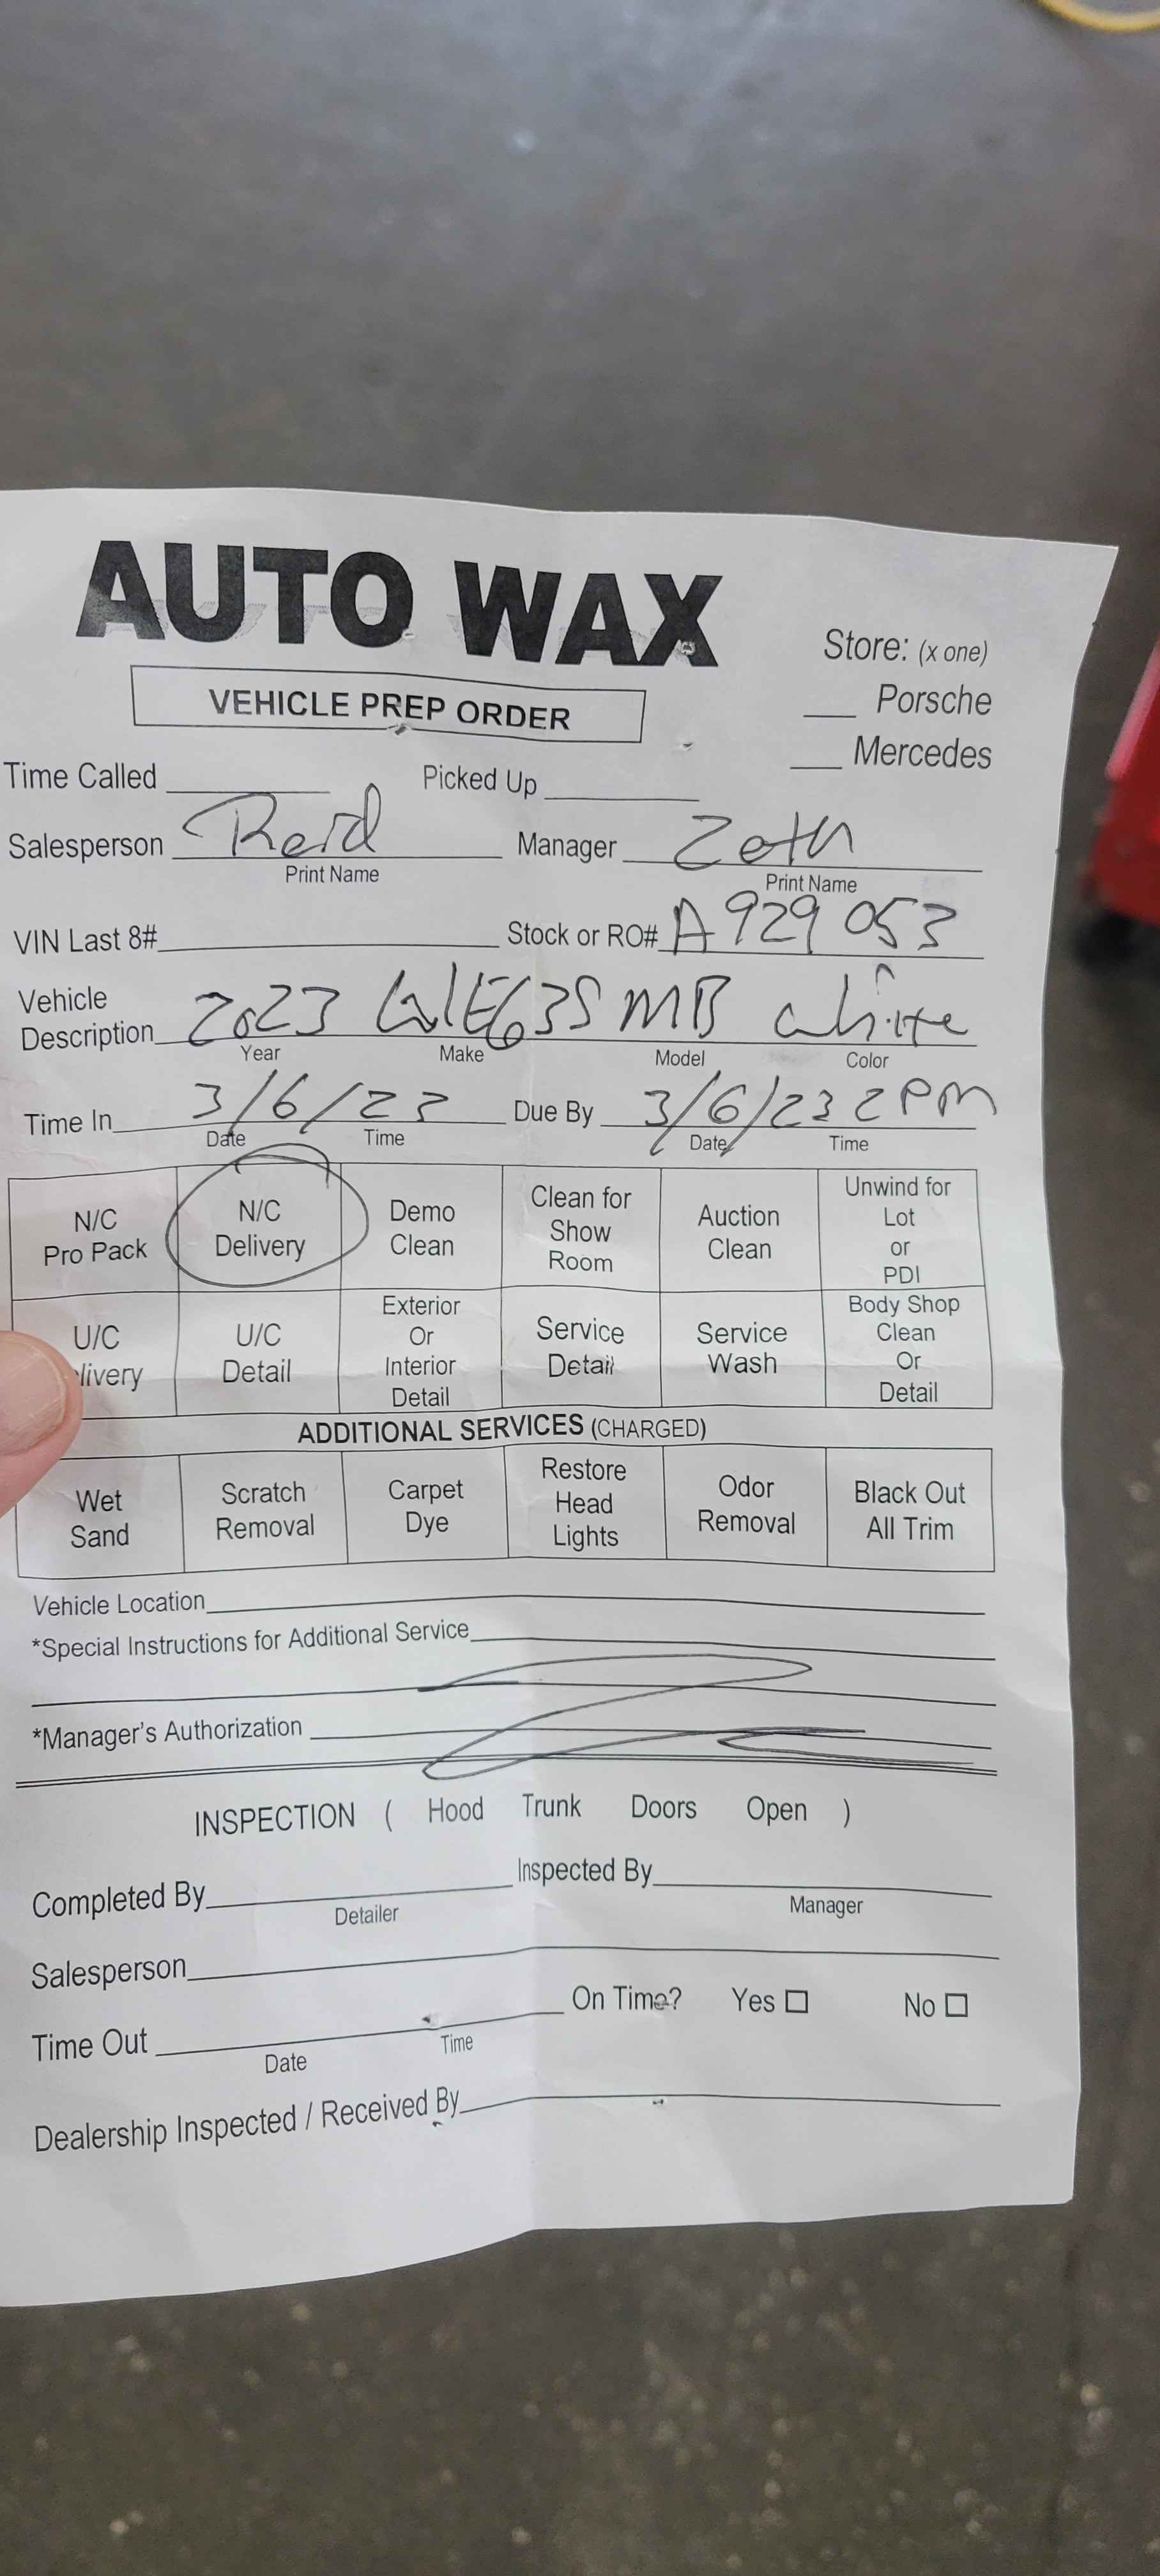 AUTO WAX
VEHICLE PREP ORDER
Store: (x one)
___ Porsche
___ Mercedes
Time Called Picked Up
Salesperson Reid Manager
Print Name Print Name
VIN Last 8# Stock or RO# A929053
Vehicle Description 2023 MB white
Year Make Model Color
Time In 3/6/23 Due By 3/6/23 2PM
Date Time Date Time
N/C Pro Pack
N/C Delivery
Demo Clean
Clean for Show Room
Auction Clean
Unwind for Lot or PDI
U/C livery
U/C Detail
Exterior Or Interior Detail
Service Detail
Service Wash
Body Shop Clean Or Detail
ADDITIONAL SERVICES (CHARGED)
Wet Sand
Scratch Removal
Carpet Dye
Restore Head Lights
Odor Removal
Black Out All Trim
Vehicle Location
*Special Instructions for Additional Service
*Manager's Authorization
INSPECTION ( Hood Trunk Doors Open )
Completed By Inspected By
Detailer Manager
Salesperson
On Time? Yes ☐ No ☐
Time Out
Date Time
Dealership Inspected / Received By